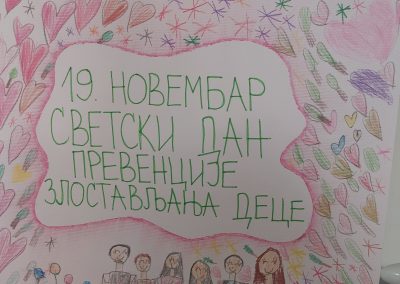 19. НОВЕМБАР
СВЕТСКИ ДАН
ПРЕВЕНЦИЈЕ
ЗЛОСТАВЉАЊА ДЕЦЕ